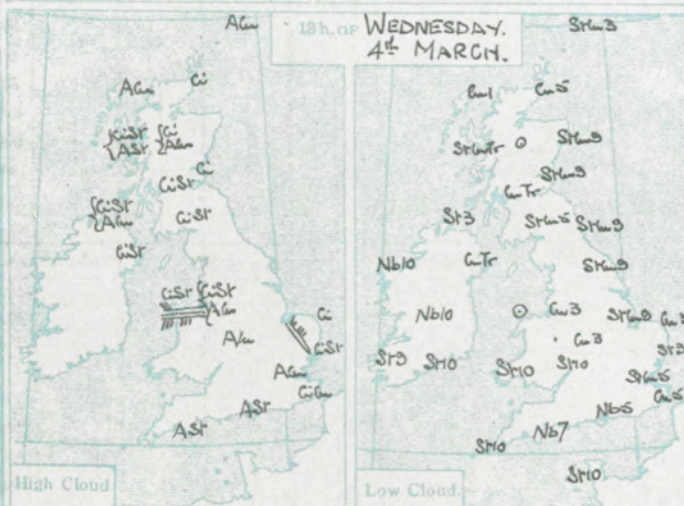 13h. OF WEDNESDAY.
4th MARCH.
ACu
Ci
ACu
{CiSt
{ASt
{Ci
{ACu
Ci
CiSt
{CiSt
{ACu
CiSt
CiSt
CiSt
{CiSt
{ACu
Ci
CiSt
ACu
CiCu
ASt
ASt
High Cloud
StCu3
Cu1
Cu5
StCuTr
StCu9
StCu9
CuTr
St3
StCu5
StCu9
Nb10
CuTr
StCu9
Nb10
Cu3
StCu9
Cu3
St9
St10
St10
St10
StCu5
Cu5
Nb5
Nb7
St10
St10
Low Cloud.